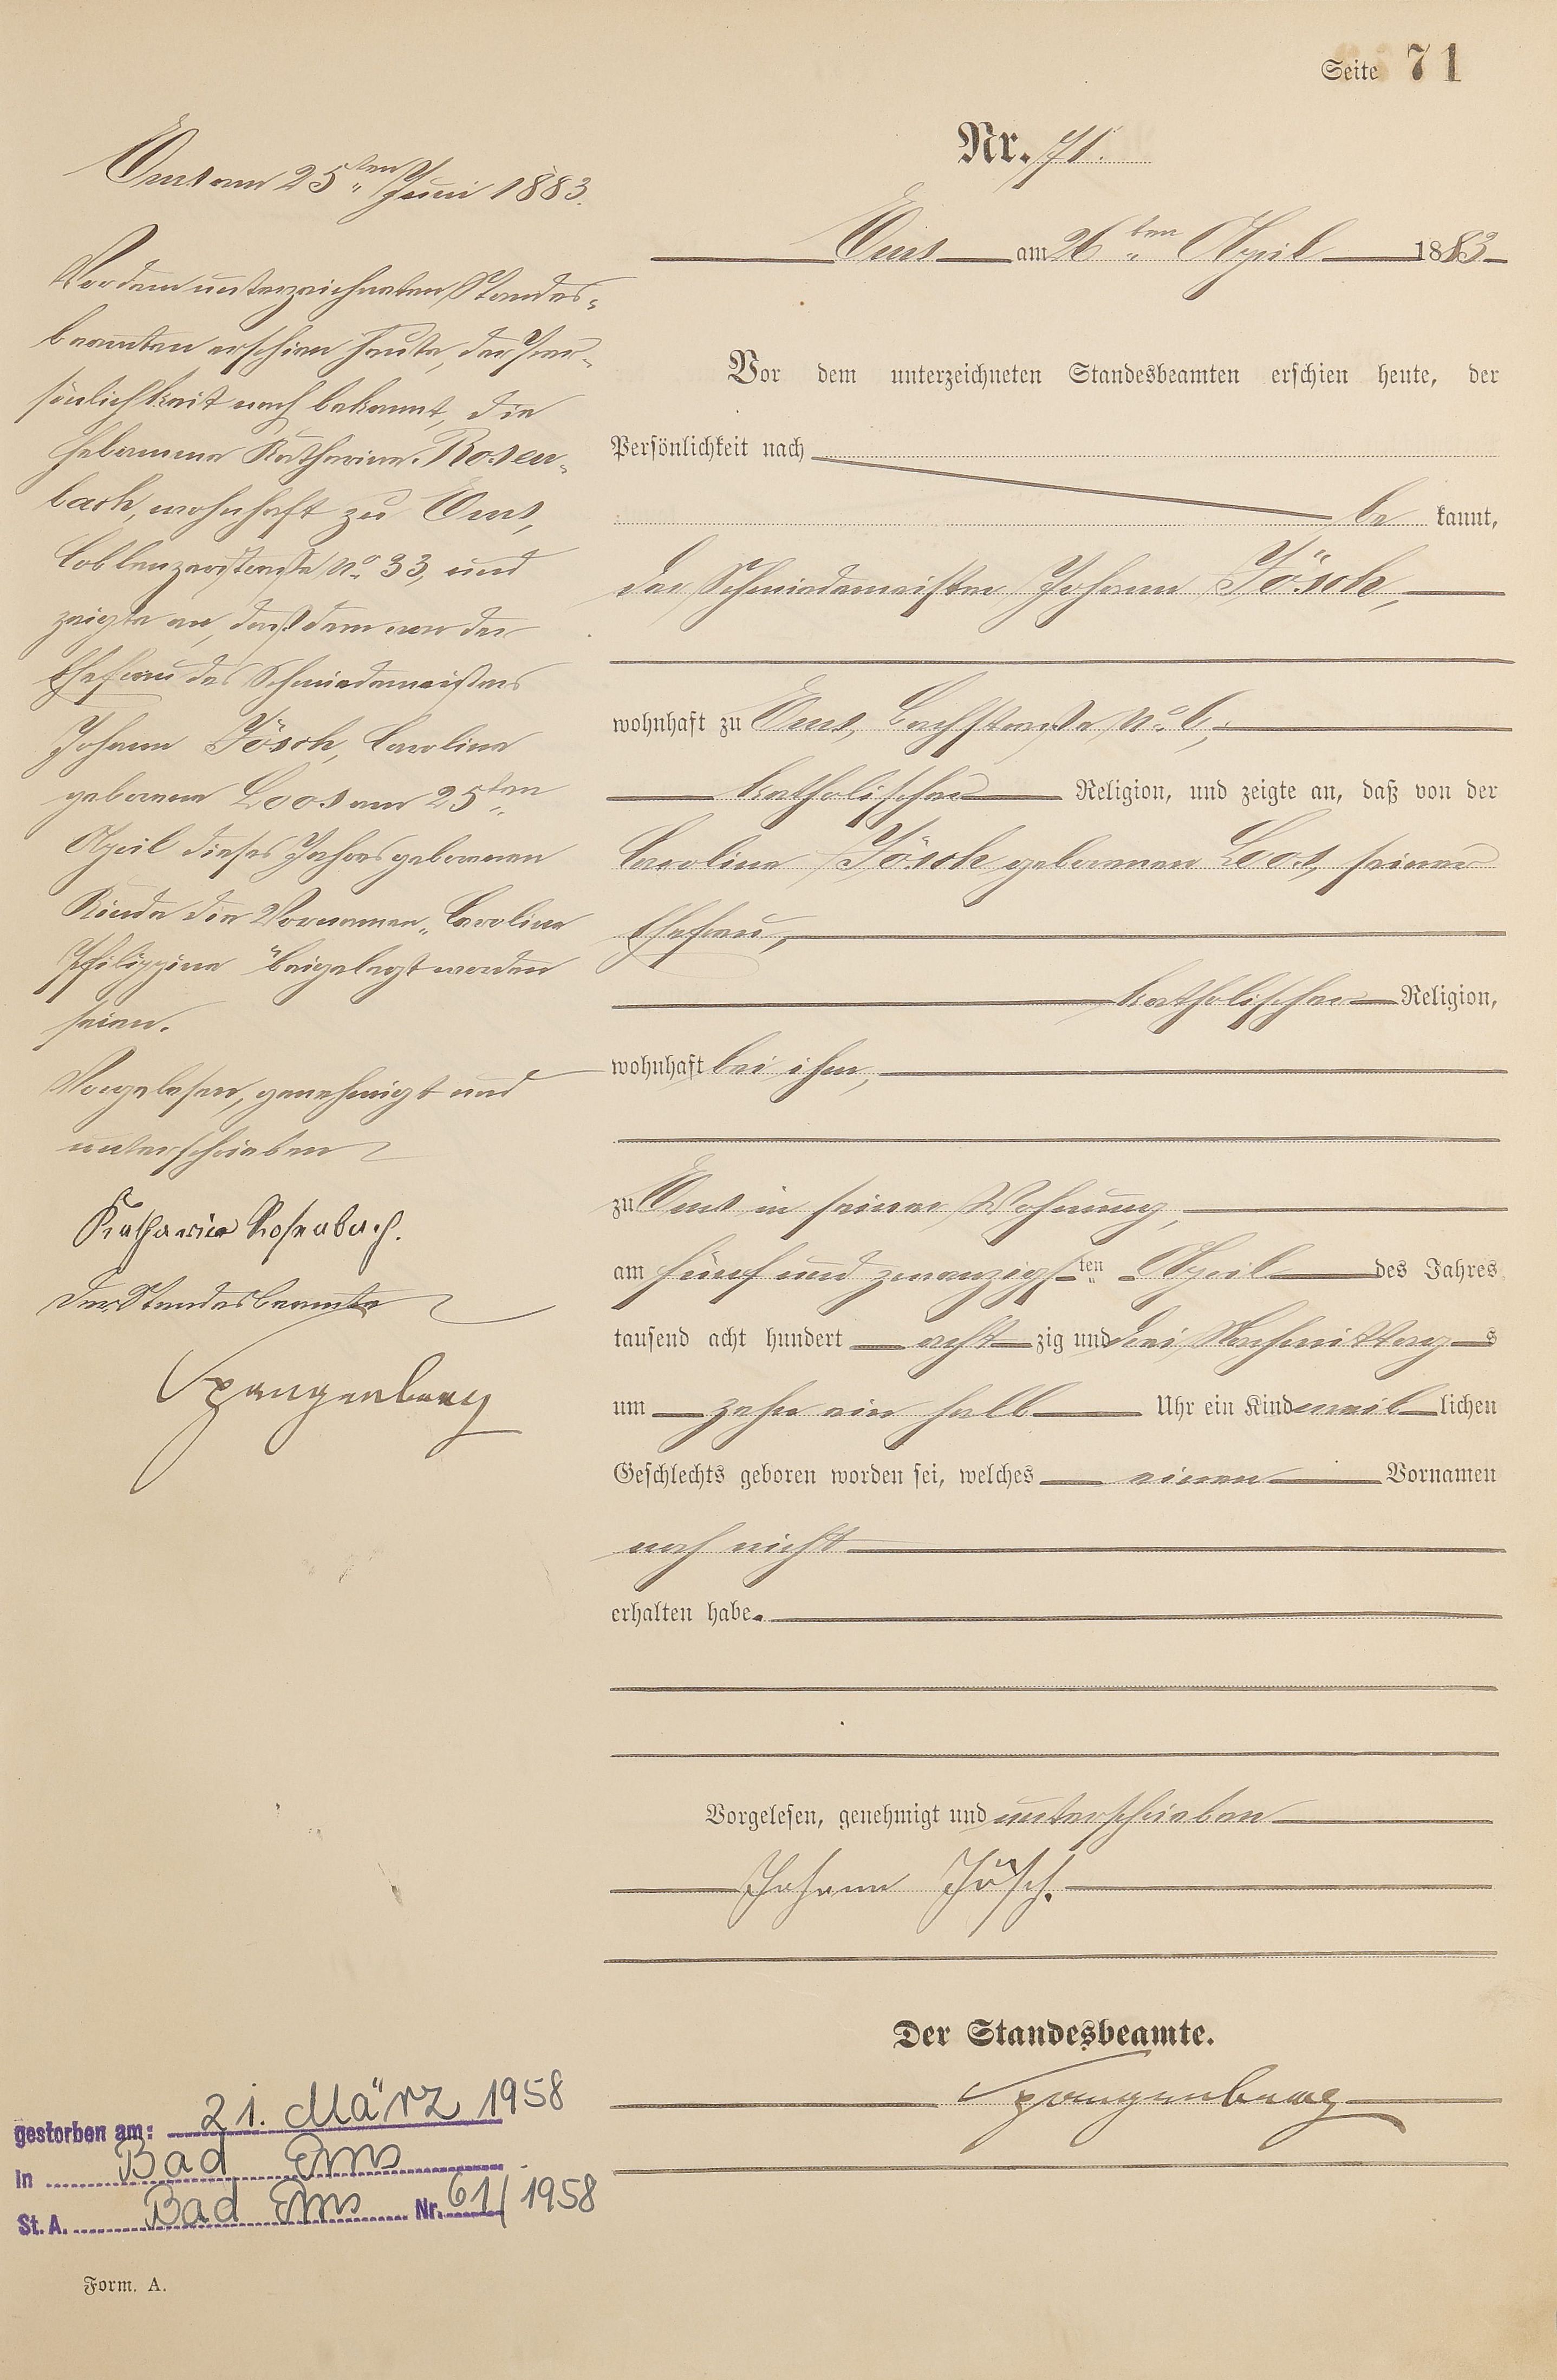 Seite 71
Nr. 71.
Ems am 26ten April 1883
Vor dem unterzeichneten Standesbeamten erschien heute, der
Persönlichkeit nach
be kannt,
der Schmiedemeister Johann Jösch,
wohnhaft zu Ems, Bachstraße No. 6,
katholischer Religion, und zeigte an, daß von der
Caroline Jösch geborenen Loos, seiner
Ehefrau,
katholischer Religion,
wohnhaft bei ihm,
zu Ems in seiner Wohnung,
am fünf und zwanzigsten April des Jahres
tausend acht hundert acht zig und drei Nachmittags
um zehn ein halb Uhr ein Kind weiblichen
Geschlechts geboren worden sei, welches einen Vornamen
noch nicht
erhalten habe.
Vorgelesen, genehmigt und unterschrieben
Johann Jösch.
Der Standesbeamte.
Spangenberg
Ems am 25ten Juni 1883.
Vor dem unterzeichneten Standes-
beamten erschien heute, der Per-
sönlichkeit nach bekannt, die
Hebamme Katharina Rosen-
bach, wohnhaft zu Ems,
Coblenzerstraße No. 33, und
zeigte an, daß dem von der
Ehefrau des Schmiedemeisters
Johann Jösch, Caroline
geborene Loos am 25ten
April dieses Jahres geborenen
Kinde die Vornamen „Caroline
Philippine" beigelegt worden
seien.
Vorgelesen, genehmigt und
unterschrieben
Katharina Rosenbach.
Der Standesbeamte
Spangenberg
gestorben am: 21. März 1958
in Bad Ems
St. A. Bad Ems Nr. 61/1958
Form. A.